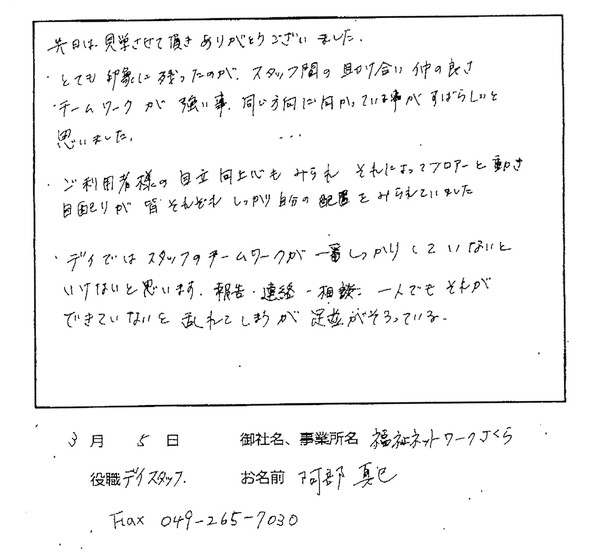 先日は見学させて頂きありがとうございました.
・とても印象に残ったのが、スタッフ間の助け合い仲の良さ
チームワークが強い事、同じ方向に向かっている事がすばらしいと
思いました.
・ご利用者様の自立向上心もみられ それによってフロアーと動き
目配りが 皆それぞれ しっかり自分の配置をみられていました
・デイではスタッフのチームワークが一番しっかりしていないと
いけないと思います. 報告・連絡・相談: 一人でもそれが
できていないと乱れてしまうが 足並がそろっている.
3月 5日 御社名、事業所名 福祉ネットワークさくら
役職 デイスタッフ. お名前 阿部 真巳
Fax 049-265-7030